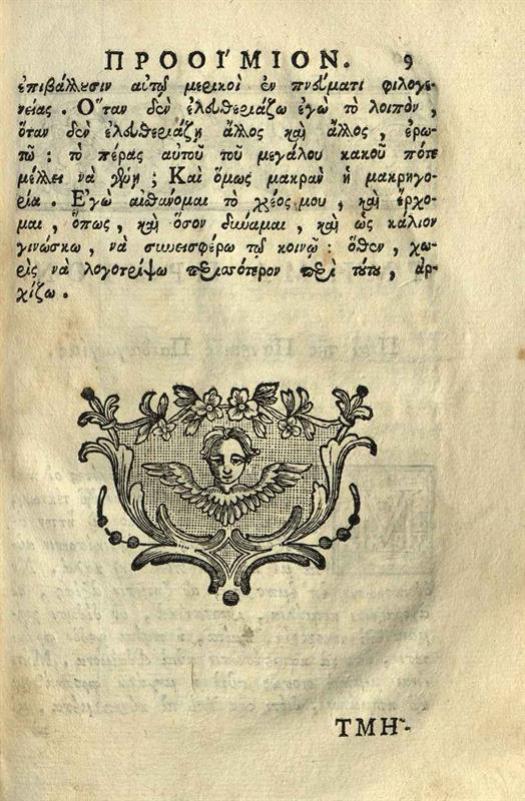 ΠΡΟΟΙ΄ΜΙΟΝ. 9
ἐπιβάλλουσιν αὐτῷ μερικοὶ ἐν πνεύματι φιλογε-
νείας. Ὅταν δὲν ἐλευθεριάζω ἐγὼ τὸ λοιπὸν,
ὅταν δὲν ἐλευθεριάζῃ ἄλλος καὶ ἄλλος, ἐρω-
τῶ: τὸ πέρας αὐτοῦ τοῦ μεγάλου κακοῦ πότε
μέλλει νὰ γένῃ; Καὶ ὅμως μακρὰν ἡ μακρηγο-
ρία. Ἐγὼ αἰσθάνομαι τὸ χρέος μου, καὶ ἔρχο-
μαι, ὅπως, καὶ ὅσον δύναμαι, καὶ ὡς κάλιον
γινώσκω, νὰ συνεισφέρω τῷ κοινῷ: ὅθεν, χω-
ρὶς νὰ λογοτρίψω περισσότερον περὶ τούτου, ἀρ-
χίζω.
ΤΜΗ-